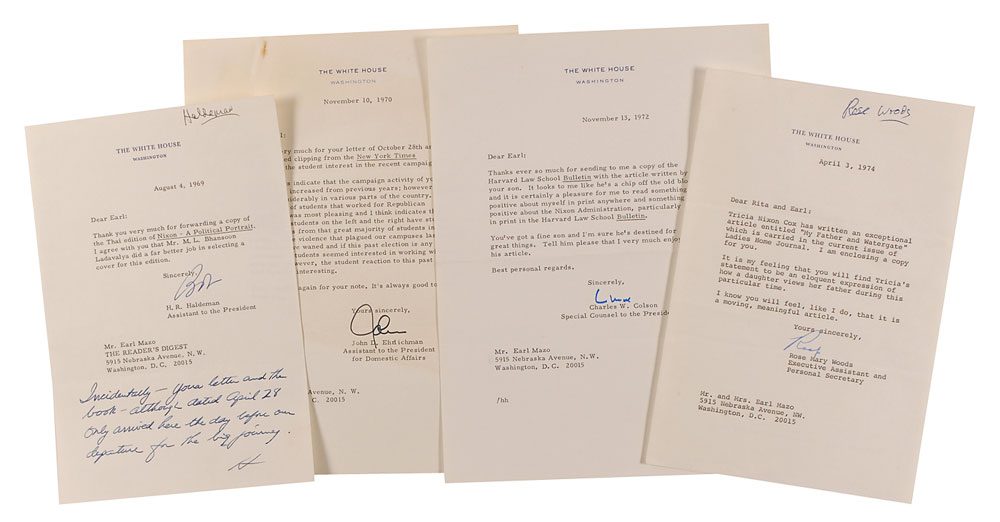 Haldeman
THE WHITE HOUSE
WASHINGTON
August 4, 1969
Dear Earl:
Thank you very much for forwarding a copy of
the Thai edition of Nixon - A Political Portrait.
I agree with you that Mr. M. L. Bhansoon
Ladavalya did a far better job in selecting a
cover for this edition.
Sincerely,
H. R. Haldeman
Assistant to the President
Mr. Earl Mazo
THE READER'S DIGEST
5915 Nebraska Avenue, N. W.
Washington, D. C. 20015
Incidentally - your letter and the
book - although dated April 28
only arrived here the day before our
departure for the big journey.
H
THE WHITE HOUSE
WASHINGTON
November 10, 1970
much for your letter of October 28th
ed clipping from the New York Times
the student interest in the recent campaign
indicate that the campaign activity of
increased from previous years; however
derably in various parts of the country.
of students that worked for Republican
was most pleasing and I think indicates
students on the left and the right have
from that great majority of students in
violence that plagued our campuses
waned and if this past election is any
students seemed interested in working
however, the student reaction to this past
interesting.
again for your note. It's always good to
Yours sincerely,
John D. Ehrlichman
Assistant to the President
for Domestic Affairs
Avenue, N. W.
C. 20015
THE WHITE HOUSE
WASHINGTON
November 13, 1972
Dear Earl:
Thanks ever so much for sending to me a copy of the
Harvard Law School Bulletin with the article written by
your son. It looks to me like he's a chip off the old
and it is certainly a pleasure for me to read something
positive about myself in print anywhere and something
positive about the Nixon Administration, particularly
in print in the Harvard Law School Bulletin.
You've got a fine son and I'm sure he's destined for
great things. Tell him please that I very much
his article.
Best personal regards.
Sincerely,
Charles W. Colson
Special Counsel to the
Mr. Earl Mazo
5915 Nebraska Avenue, N. W.
Washington, D. C. 20015
/hh
Rose Woods
THE WHITE HOUSE
WASHINGTON
April 3, 1974
Dear Rita and Earl:
Tricia Nixon Cox has written an exceptional
article entitled "My Father and Watergate"
which is carried in the current issue of
Ladies Home Journal. I am enclosing a copy
for you.
It is my feeling that you will find Tricia's
statement to be an eloquent expression of
how a daughter views her father during this
particular time.
I know you will feel, like I do, that it is
a moving, meaningful article.
Yours sincerely,
Rose
Rose Mary Woods
Executive Assistant and
Personal Secretary
Mr. and Mrs. Earl Mazo
5915 Nebraska Avenue, NW.
Washington, D.C. 20015